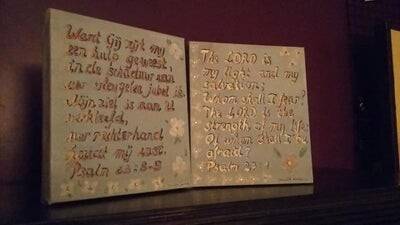 Want Gij zijt mij
een hulp geweest,
in de schaduw van
uw vleugelen jubel ik.
Mijn ziel is aan U
verkleefd,
uw rechterhand
houdt mij vast.
Psalm 63:8-9
The LORD is
my light and my
salvation;
Whom shall I fear?
The LORD is the
strength of my life;
Of whom shall I be
afraid?
Psalm